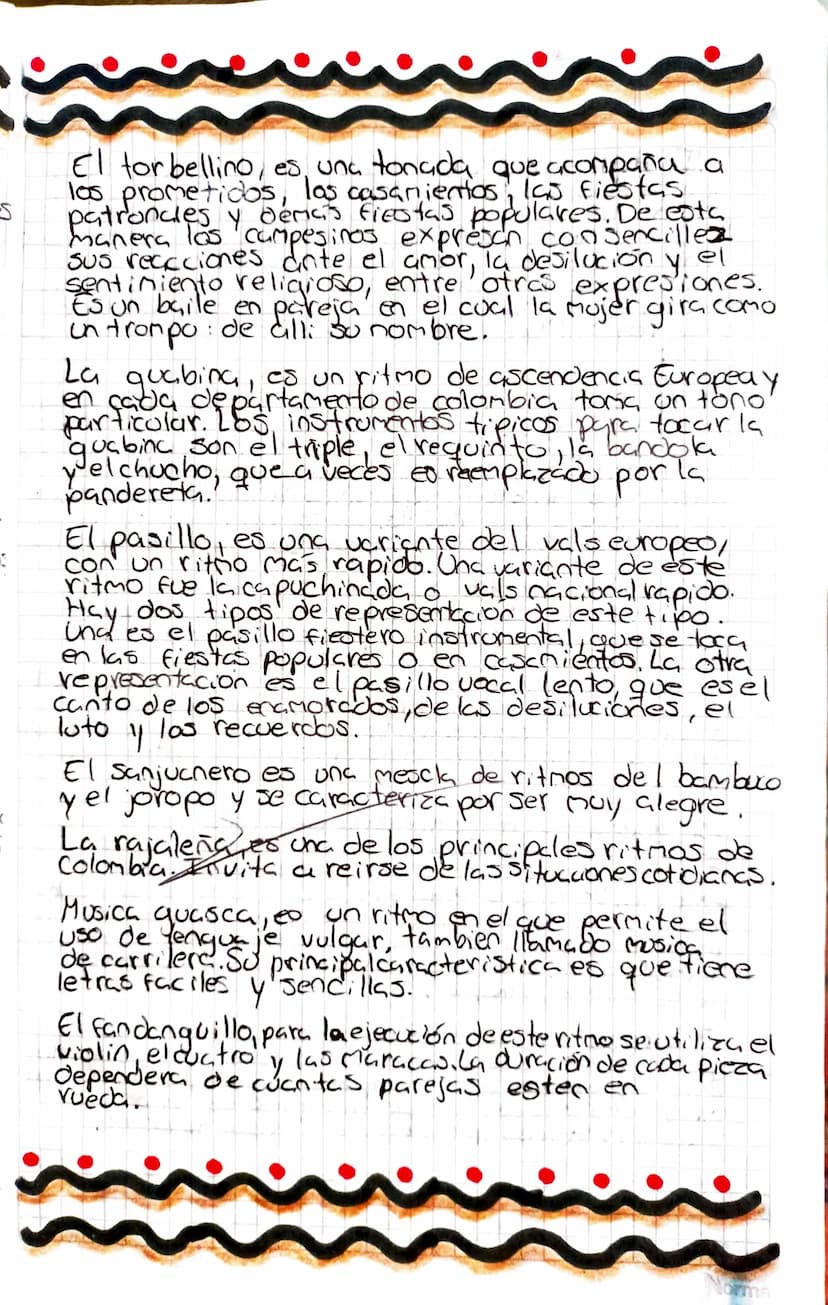 El torbellino, es una tonada que acompaña a
los prometidos, los casamientos, las fiestas
patronales y demas fiestas populares. De esta
manera los campesinos expresan con sencillez
sus reacciones ante el amor, la desilución y el
sentimiento religioso, entre otras expresiones.
Es un baile en pareja en el cual la mujer gira como
un trompo: de alli su nombre.
La guabina, es un ritmo de ascendencia Europea y
en cada departamento de colombia toma un tono
particular. Los instrumentos tipicos para tocar la
guabina son el triple, el requinto, la bandola
y el chucho, que a veces es reemplazado por la
pandereta.
El pasillo, es una variante del vals europeo,
con un ritmo más rapido. Una variante de este
ritmo fue la capuchinada o vals nacional rapido.
Hay dos tipos de representacion de este tipo.
Una es el pasillo fiestero instrumental, que se toca
en las fiestas populares o en casamientos. La otra
representacion es el pasillo vocal lento, que es el
canto de los enamorados, de las desiluciones, el
luto y los recuerdos.
El sanjuanero es una mescla de ritmos del bambuco
y el joropo y se caracteriza por ser muy alegre.
La rajaleña es una de los principales ritmos de
Colombia. Invita a reirse de las situaciones cotidianas.
Musica guasca, es un ritmo en el que permite el
uso de lenguaje vulgar, tambien llamado musica
de carrilera. Su principal caracteristica es que tiene
letras faciles y sencillas.
El fandanguillo, para la ejecución de este ritmo se utiliza el
violin, el cuatro y las maracas. La duración de cada pieza
dependera de cuantas parejas esten en
rueda.
Norma